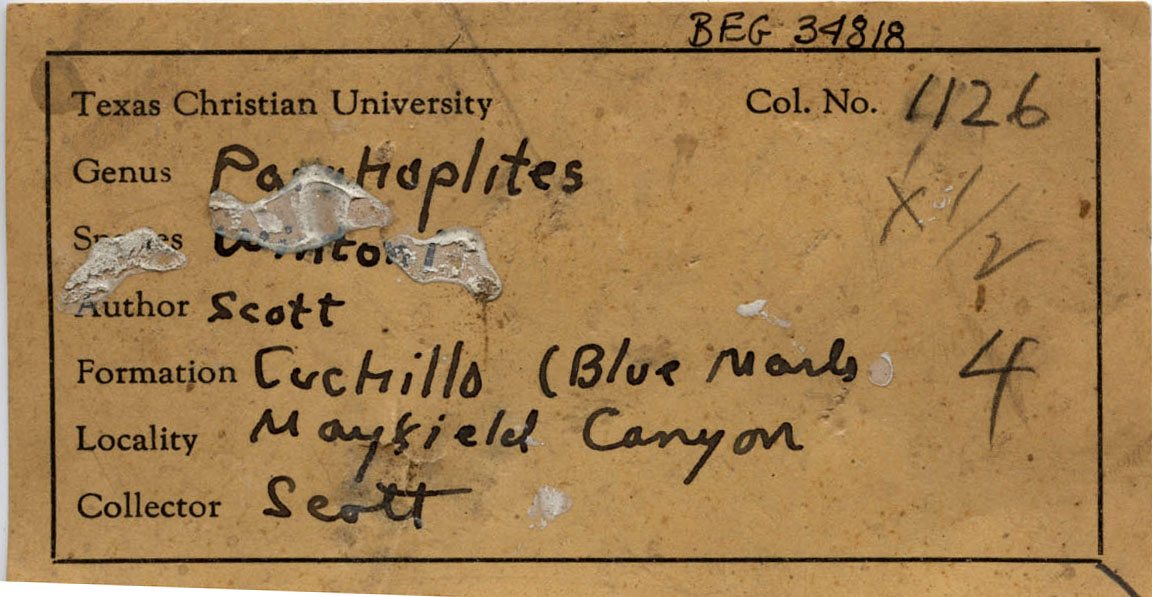 BEG 34818
Texas Christian University Col. No. 1126
Genus Parahoplites
x 1/2
Species Wintoni
Author Scott
Formation Cuchillo (Blue Marls
4
Locality Mayfield Canyon
Collector Scott